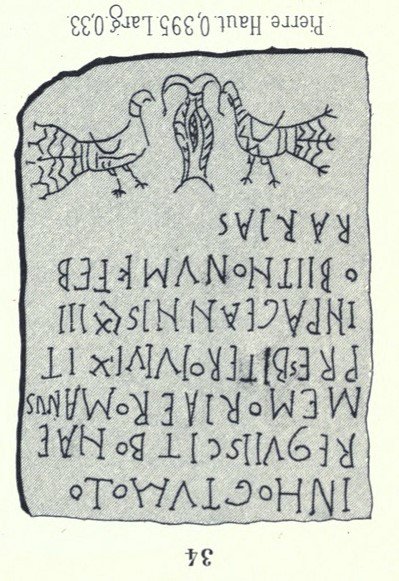 34
INHOCTVMOLO
REQVIISCITBONAE
MEMORIAEROMANVS
PRESBITERQVIVIXIT
INPACEANNISLXIII
OBIITNONVMKFEB
RARIAS
Pierre. Haut. 0,395. Larg. 0,33.